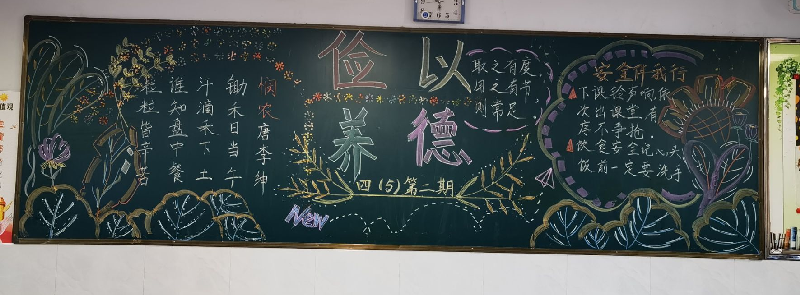 俭以
养德
四(5)第二期
悯农 唐 李绅
锄禾日当午
汗滴禾下土
谁知盘中餐
粒粒皆辛苦
取之有度,
用之有节,
则常足。
安全伴我行
下课铃声响,依
次出课堂,有
序不争抢。
饮食安全记心头
饭前一定要洗手
New